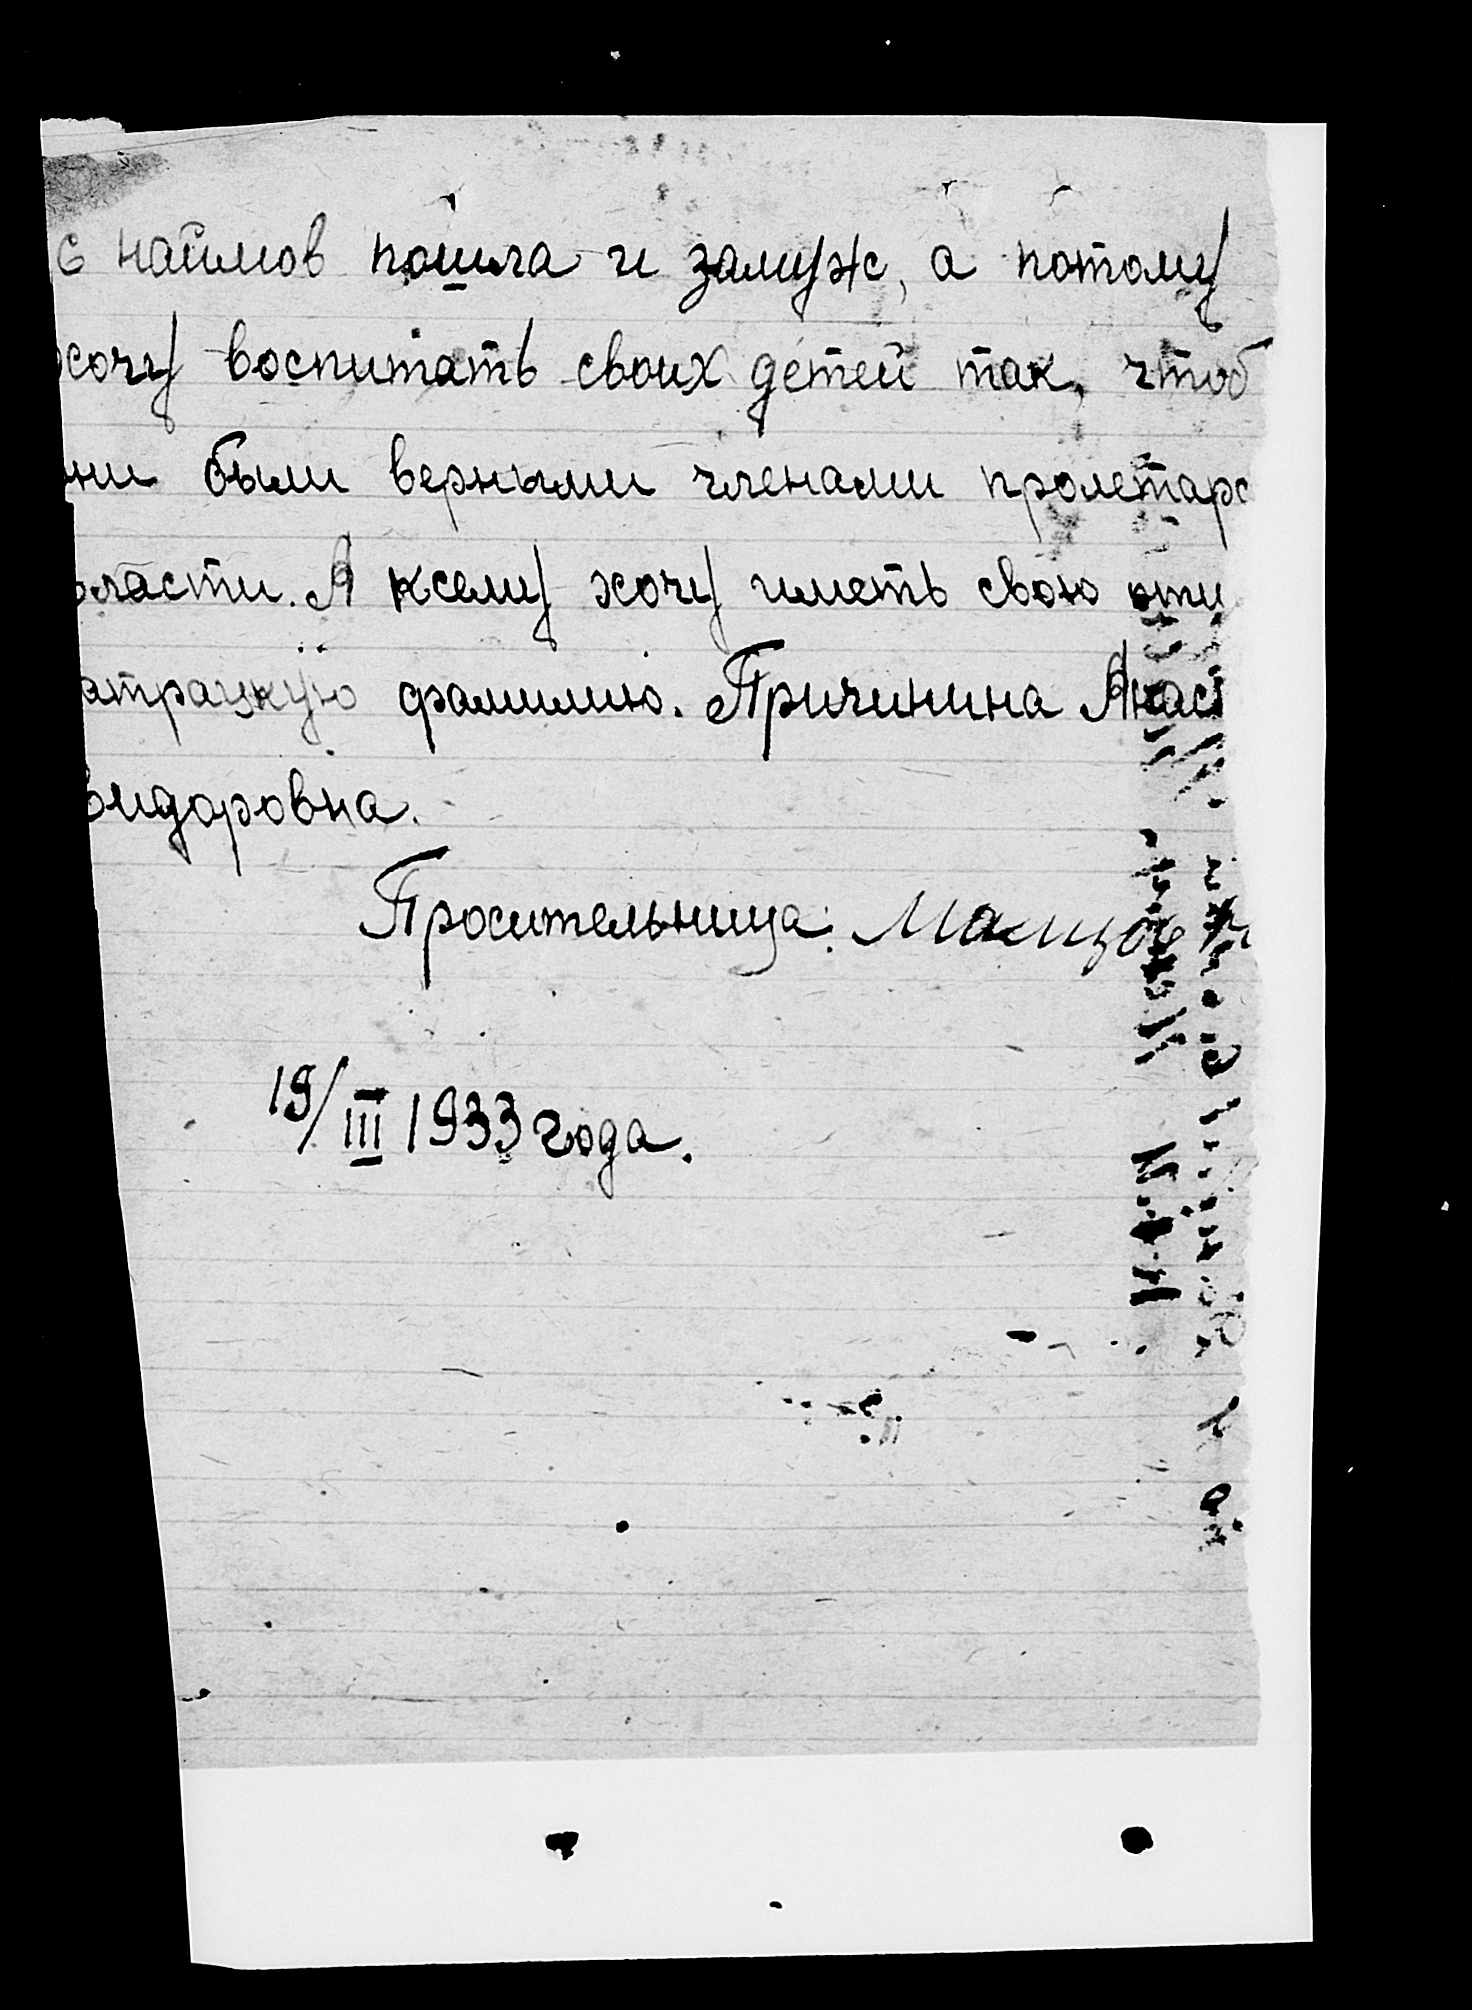 с наймов пошла и замуж, а потому
хочу воспитать своих детей так, чтоб
ни были верными членами пролетарс
власти. А ксему хочу иметь свою
атрацкую фамилию. Причинина Анас
видоровна.
Просительница:
19/III 1933 года.